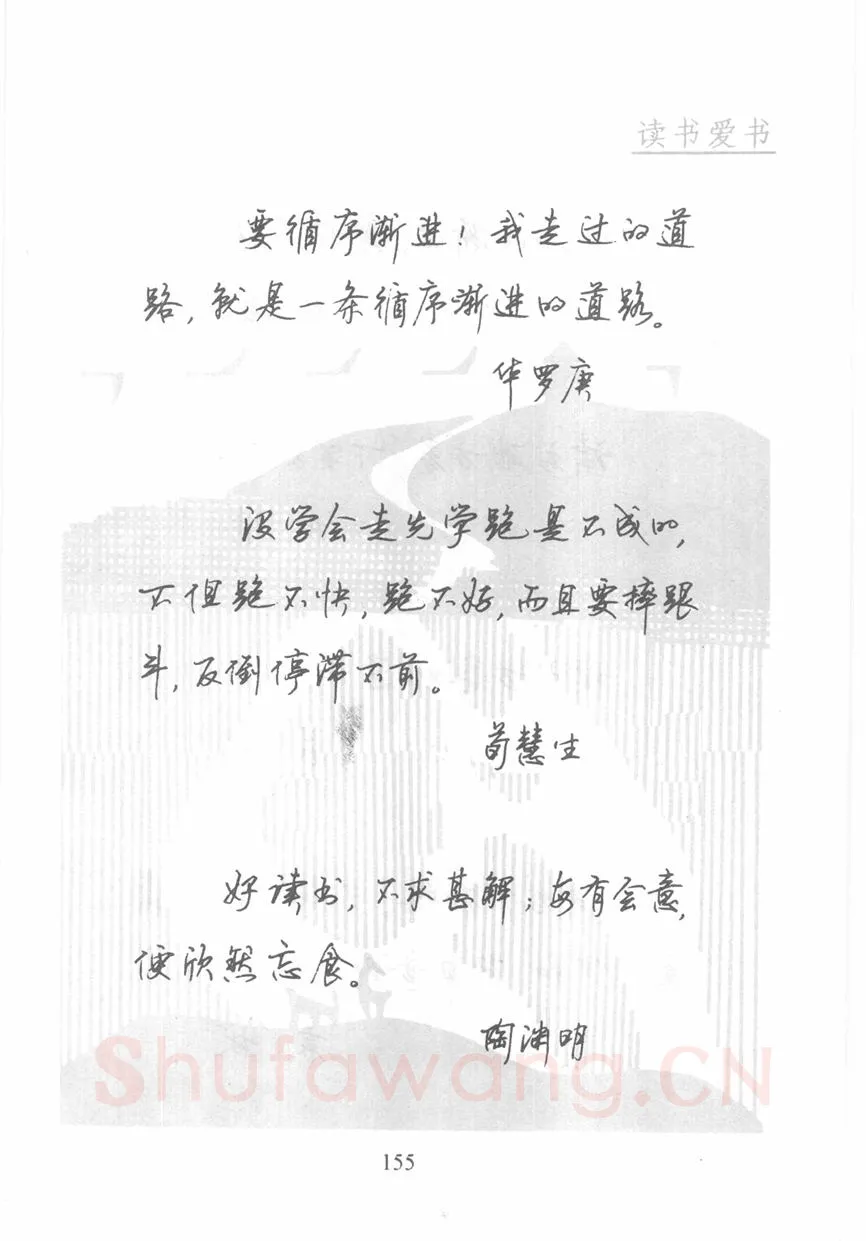 读书爱书
要循序渐进！我走过的道
路，就是一条循序渐进的道路。
华罗庚
没学会走先学跑是不成的，
不但跑不快，跑不好，而且要摔跟
斗，反倒停滞不前。
荀慧生
好读书，不求甚解；每有会意，
便欣然忘食。
陶渊明
Shufawang.CN
155